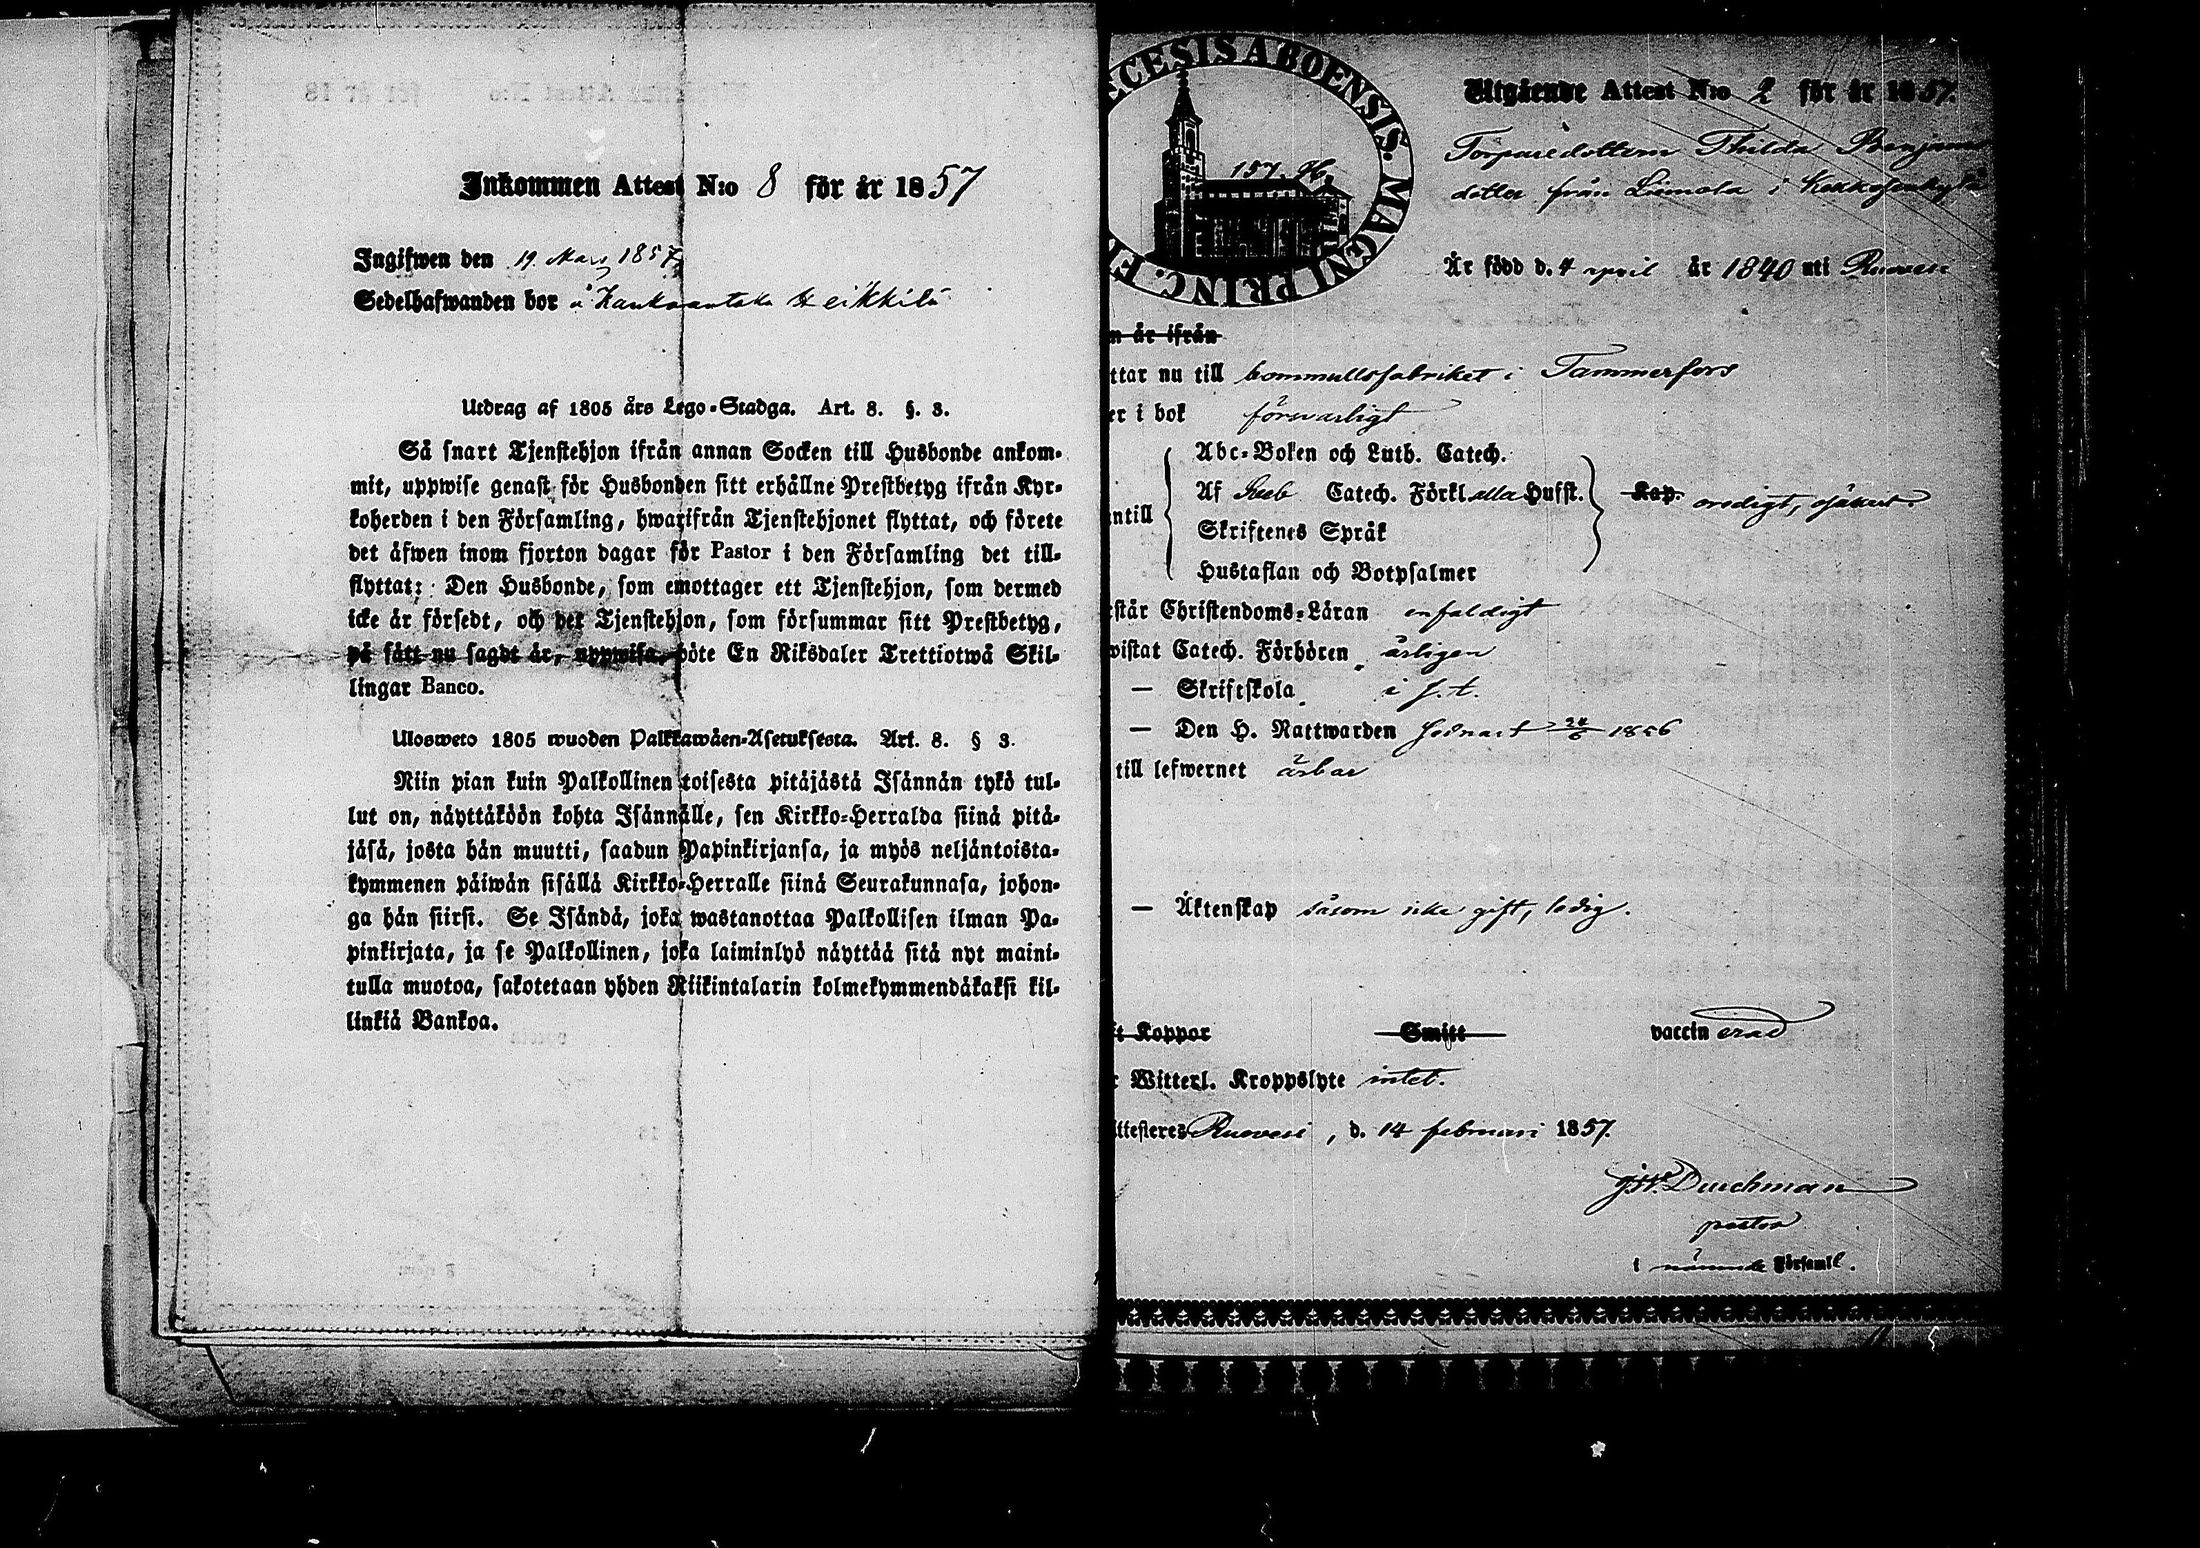 Inkommen Attest N:o 8 för år 1857
Ingifwen den 19 Mars 1857
Sedelhafwanden bor å Kauksantaka Heikkilä
Utdrag af 1805 års Lego-Stadga. Art. 8. §. 3.
Så snart Tjenstehjon ifrån annan Socken till Husbonde ankom-
mit, uppwise genast för Husbonden sitt erhållne Prestbetyg ifrån Kyr-
koherden i den Församling, hwarifrån Tjenstehjonet flyttat, och förete
det äfwen inom fjorton dagar för Pastor i den Församling det till-
flyttat: Den Husbonde, som emottager ett Tjenstehjon, som dermed
icke är försedt, och det Tjenstehjon, som försummar sitt Prestbetyg,
på sätt nu sagdt är, uppwisa, böte En Riksdaler Trettiotwå Skil-
lingar Banco.
Ulosweto 1805 wuoden Palkkawäen-Asetuksesta. Art. 8. § 3.
Niin pian kuin Palkollinen toisesta pitäjästä Isännän tykö tul-
lut on, näyttäköön kohta Isännälle, sen Kirkko-Herralda siinä pitä-
jäsä, josta hän muutti, saadun Papinkirjansa, ja myös neljäntoista-
kymmenen päiwän sisällä Kirkko-Herralle siinä Seurakunnasa, johon-
ga hän siirsi. Se Isändä, joka wastanottaa Palkollisen ilman Pa-
pinkirjata, ja se Palkollinen, joka laiminlyö näyttää sitä nyt maini-
tulla muotoa, sakotetaan yhden Riikintalarin kolmekymmendäkaksi kil-
linkiä Bankoa.
CESIS ABOENSIS. MAGNI PRINC. F
157. H.
Utgående Attest N:o 2 för år 1857.
Torparedottern Thilda Benjams
dotter från Liimola i Kekkosenkylä
Är född d. 4 april år 1840 uti Ruovesi
n är ifrån
ttar nu till bommullsfabriket i Tammerfors
er i bok försvarligt
Abc-Boken och Luth. Catech.
ntill Af Sveb Catech. Förkl alla Husst. Kap. oredigt, osäkert.
Skriftenes Språk
Hustaflan och Botpsalmer
står Christendoms-Läran enfaldigt
wistat Catech. Förhören årligen
— Skriftskola i s. t.
— Den H. Nattwarden sednast 24/6 1856
till lefwernet ärbar
— Äktenskap såsom icke gift, ledig.
t Koppor Smitt vaccinerad
r Witterl. Kroppslyte intet.
ttesteres Ruovesi, d. 14 februari 1857.
Durchman
pastor
i nämnde Församl.